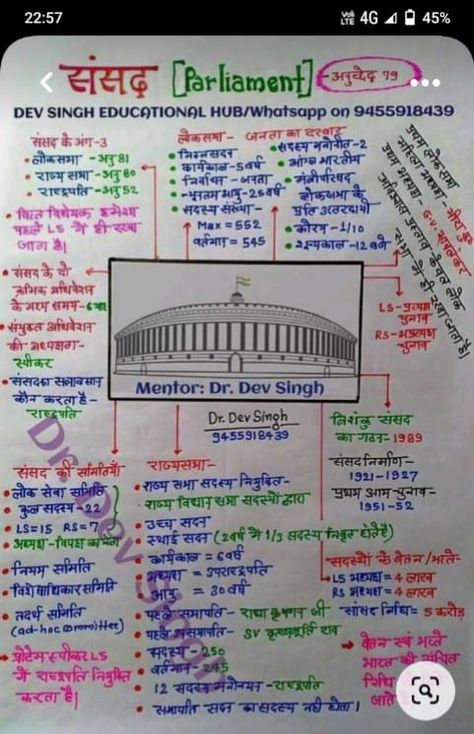 22:57
4G 45%
संसद [Parliament] अनुच्छेद 79
DEV SINGH EDUCATIONAL HUB/Whatsapp on 9455918439
संसद के अंग-3
• लोकसभा - अनु 81
• राज्य सभा - अनु 80
• राष्ट्रपति - अनु 52
• वित्त विधेयक हमेशा
पहले LS में ही रखा
जाता है।
• संसद के दो
क्रमिक अधिवेशन
के मध्य समय - 6 माह
• संयुक्त अधिवेशन
की अध्यक्षता -
स्पीकर
• संसद का सत्रावसान
कौन करता है -
राष्ट्रपति
लोकसभा - जनता का दरबार
• निम्न सदन
• कार्यकाल - 5 वर्ष
• निर्वाचन - जनता
• न्यूनतम आयु - 25 वर्ष
• सदस्य संख्या -
Max = 552
वर्तमान = 545
• सदस्य मनोनीत - 2
• आंग्ल भारतीय
• मंत्रीपरिषद
लोकसभा के
प्रति उत्तरदायी
• कोरम - 1/10
• शून्यकाल - 12 बजे
प्रथम लोकसभा
महिला अध्यक्ष - मीरा कु
प्रथम अध्यक्ष - G.V. मावलंकर
अविश्वास प्रस्ताव केवल लोक
सभा में ही रखा जाता है।
LS - प्रत्यक्ष
चुनाव
RS - अप्रत्यक्ष
चुनाव
Mentor: Dr. Dev Singh
Dr. Dev Singh
9455918439
त्रिशंकु संसद
का गठन - 1989
संसद निर्माण -
1921-1927
प्रथम आम चुनाव -
1951-52
सदस्यों के वेतन/भत्ते -
LS अध्यक्ष = 4 लाख
RS अध्यक्ष = 4 लाख
सांसद निधि = 5 करोड़
वेतन एवं भत्ते
भारत की संचित
निधि
जाते
संसद की समितियाँ
• लोक सेवा समिति
• कुल सदस्य - 22
• LS=15 RS=7
• अध्यक्ष - विपक्ष का नेता
• नियम समिति
• विशेषाधिकार समिति
• तदर्थ समिति
(ad-hoc committee)
प्रोटेम स्पीकर LS
में राष्ट्रपति नियुक्ति
करता है।
राज्यसभा -
• राज्य सभा सदस्य नियुक्ति -
राज्य विधान सभा सदस्यों द्वारा
• उच्च सदन
• स्थाई सदन (2 वर्ष में 1/3 सदस्य निवृत होते हैं)
• कार्यकाल = 6 वर्ष
• अध्यक्ष = उपराष्ट्रपति
• आयु = 30 वर्ष
• पहले सभापति - राधा कृष्णन जी
• पहले उपसभापति - SV कृष्णमूर्ति राव
• सदस्य - 250
• वर्तमान - 245
• 12 सदस्य मनोनयन - राष्ट्रपति
• सभापति सदन का सदस्य नहीं होता।
Dr. Dev Singh